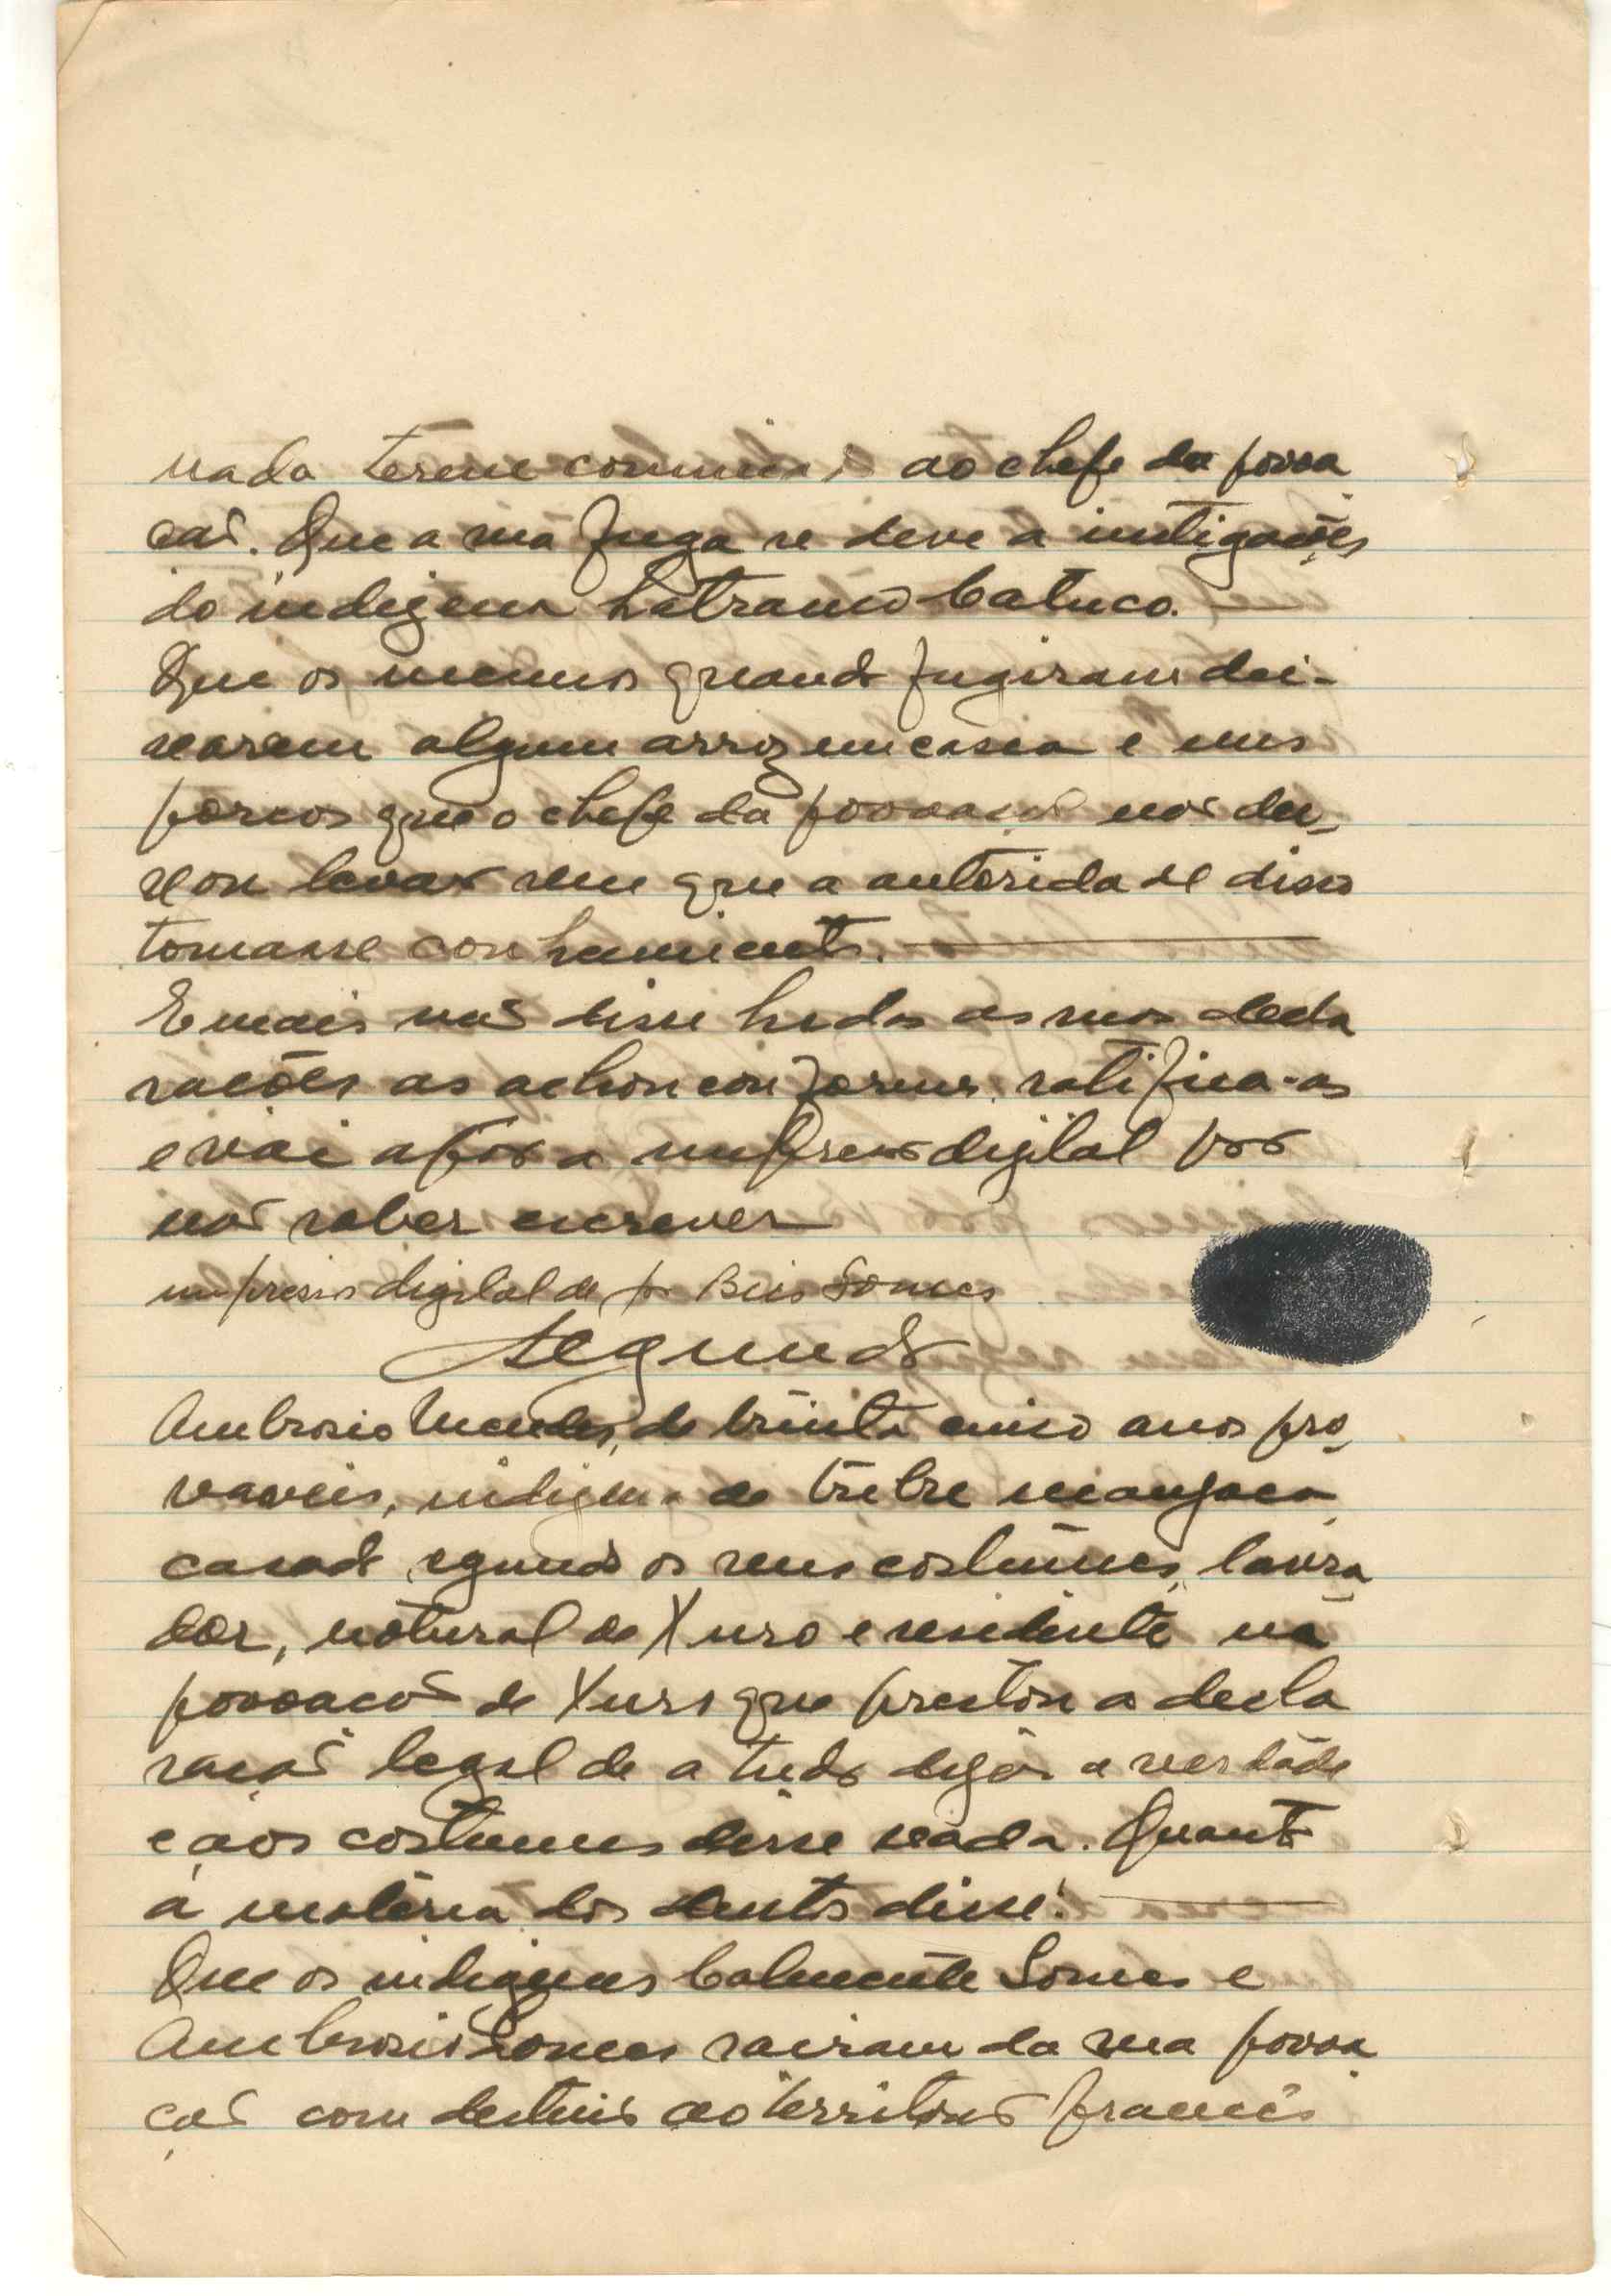 nada terem comunicado ao chefe da povoa
ção. Que a sua fuga se deve a instigações
do indigena Catuco.
Que os mesmos quando fugiram dei-
xarem algum arroz em casa e uns
porcos que o chefe da povoação não dei-
xou levar sem que a autoridade disso
tomasse conhecimento.
E mais não disse lidas as suas decla
rações as achou conformes, ratifica-as
e vai apôr a impressão digital por
não saber escrever
impressão digital de Gomes
Segundo
Ambrosio Mendes, de trinta cinco anos pro-
vaveis, indigena da tribe manjaca
casado segundo os seus costumes, lavra
dor, natural de Xuro e residente na
povoação de Xuro que prestou a decla
ração legal de a tudo dizer a verdade
e aos costumes disse nada. Quanto
á matéria dos autos disse:
Que os indigenas Gomes e
Ambrosio Gomes sairam da sua povoa
ção com destino ao território francês